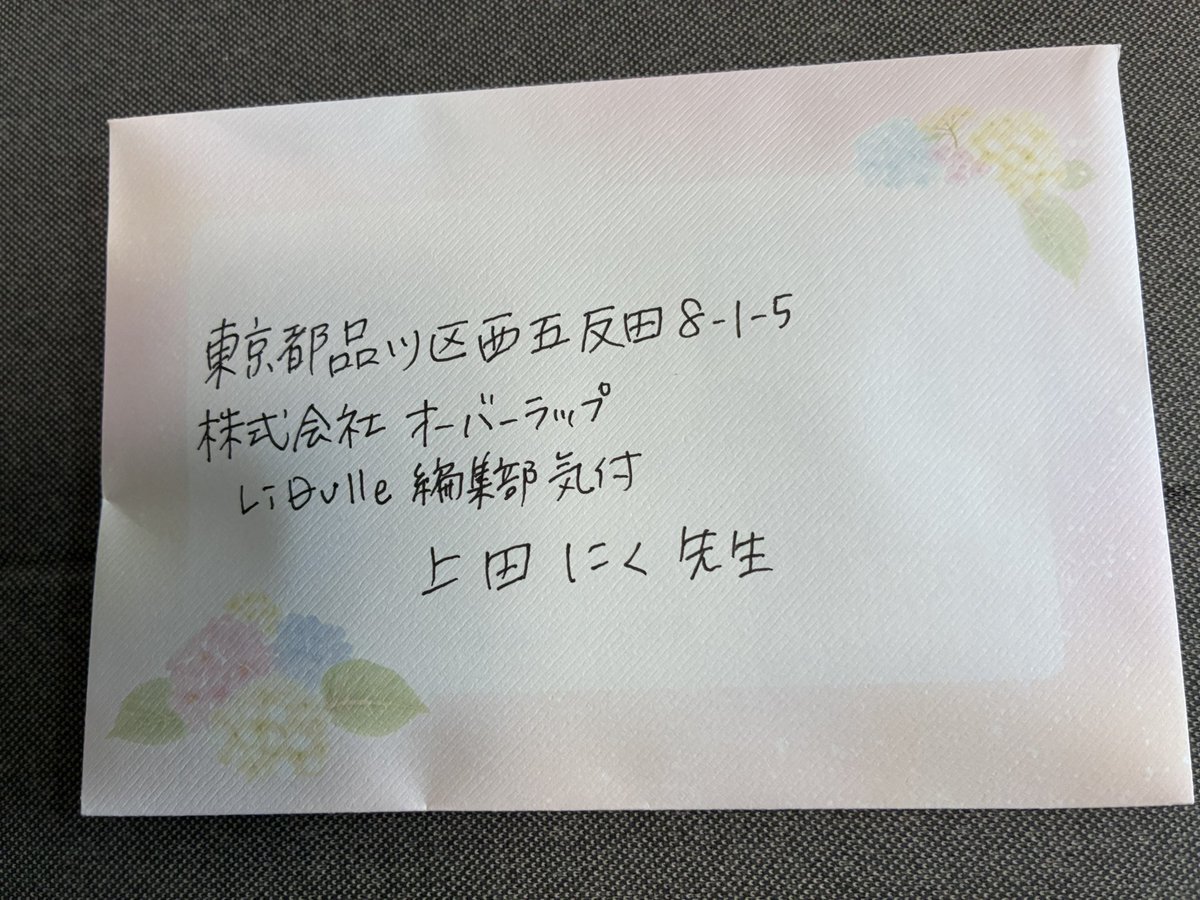 東京都品川区西五反田8-1-5
株式会社 オーバーラップ
LiQulle 編集部 気付
上田 にく 先生